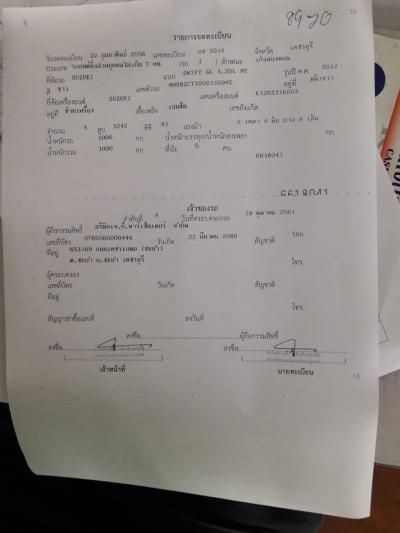 8920
10
รายการจดทะเบียน
วันจดทะเบียน 22 กุมภาพันธ์ 2556 เลขทะเบียน กง 2013 จังหวัด เพชรบุรี
ประเภท รถยนต์นั่งส่วนบุคคลไม่เกิน 7 คน (รย. 1 ) ลักษณะ เก๋งสองตอน
ยี่ห้อรถ SUZUKI แบบ SWIFT GL 1.25L MT รุ่นปี ค.ศ. 2012
สี ขาว เลขตัวรถ อยู่ที่
ยี่ห้อเครื่องยนต์ SUZUKI เลขเครื่องยนต์
อยู่ที่ เชื้อเพลิง เบนซิน เลขถังแก๊ส
จำนวน 4 สูบ 1242 ซีซี 91 แรงม้า 2 เพลา 4 ล้อ ยาง 4 เส้น
น้ำหนักรถ 1000 กก. น้ำหนักบรรทุก/น้ำหนักลงเพลา กก.
น้ำหนักรวม 1000 กก. ที่นั่ง 5 คน
6618041
6618041
เจ้าของรถ
ลำดับที่ 4 วันที่ครอบครองรถ 19 ตุลาคม 2561
ผู้ถือกรรมสิทธิ์
เลขที่บัตร 0765560000446 วันเกิด 22 มีนาคม 2560 สัญชาติ ไทย
ที่อยู่ 653/69
ต.ชะอำ อ.ชะอำ เพชรบุรี โทร.
ผู้ครอบครอง
เลขที่บัตร วันเกิด สัญชาติ
ที่อยู่
โทร.
สัญญาเช่าซื้อเลขที่ ลงวันที่
ลงชื่อ ผู้ถือกรรมสิทธิ์
ลงชื่อ ลงชื่อ
เจ้าหน้าที่ นายทะเบียน
11